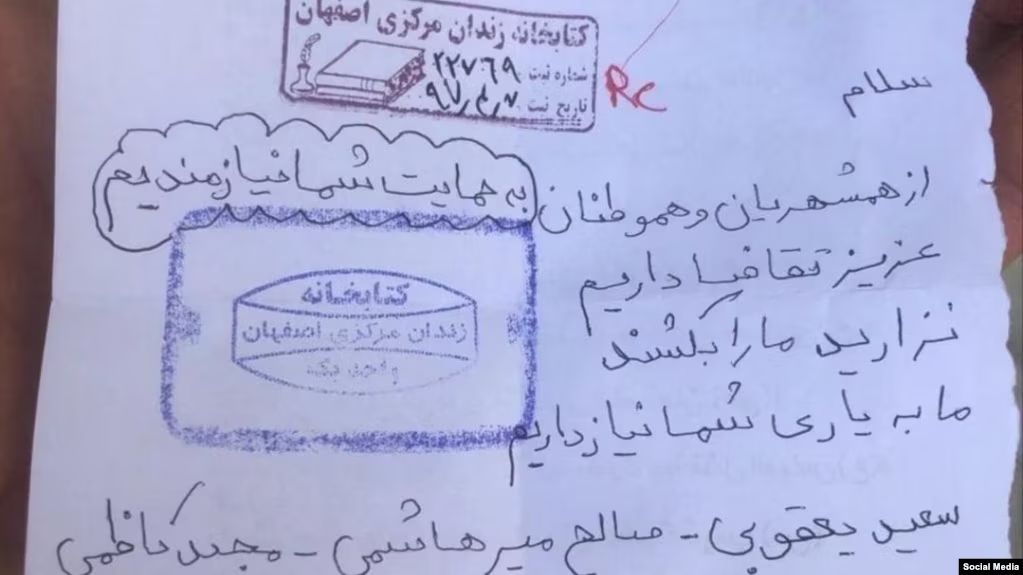 کتابخانه زندان مرکزی اصفهان
شماره ثبت ۲۲۷۶۹
تاریخ ثبت ۹۷٫۴٫۷
Rc
سلام
از همشهریان و هموطنان به حمایت شما نیازمندیم
عزیز تقاضا داریم
نزارید ما را بکشند
ما به یاری شما نیاز داریم
سعید یعقوبی - صالح میرهاشمی - مجید کاظمی
کتابخانه
زندان مرکزی اصفهان
واحد یک
Social Media